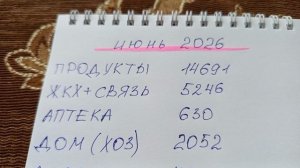 ИЮНЬ 2026
ПРОДУКТЫ 14691
ЖКХ+СВЯЗЬ 5246
АПТЕКА 630
ДОМ (ХОЗ) 2052